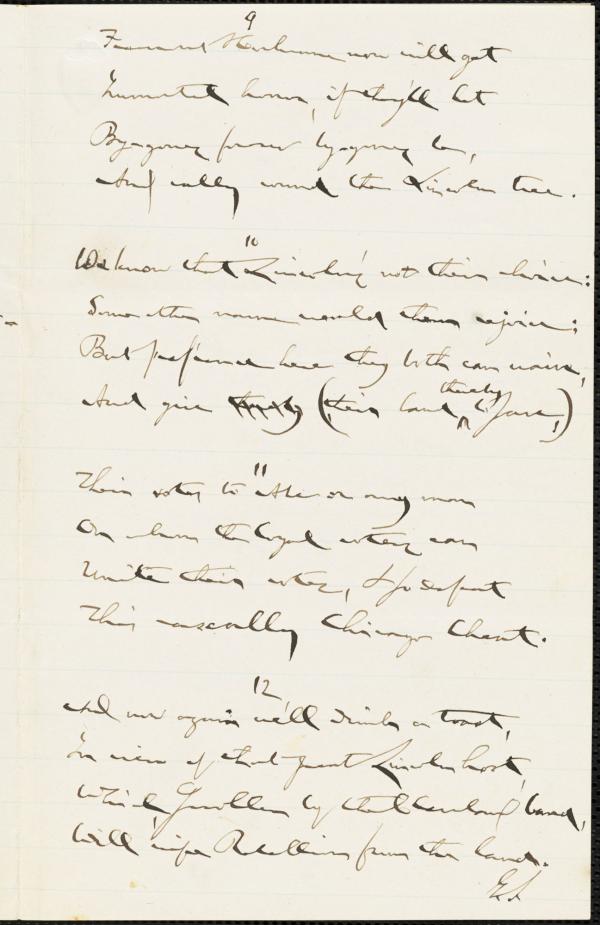 9
Fremont Henchmen now will get
Immortal honor, if they'll let
By-gones forever by-gones be,
And rally round the Lincoln tree.
10
We know that Lincoln's not their choice:
Some other name would them rejoice;
But preference here they both can waive,
And give (their land thereby to save,)
11
Their votes to Abe or any man
On whom the loyal voters can
Unite their votes, & so defeat
This rascally Chicago Cheat.
12
And now again we'll drink a toast,
In view of that great Lincoln host,
Which, swollen by that band,
Will wipe Rebellion from the land.